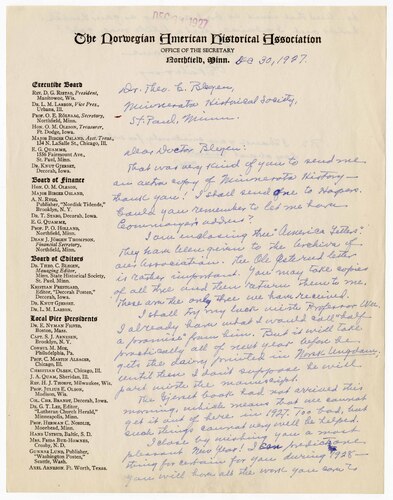 DEC 31 1927
The Norwegian American Historical Association
OFFICE OF THE SECRETARY
Northfield, Minn. Dec 30, 1927.
Executive Board
REV. D. G. RISTAD, President,
Manitowoc, Wis.
DR. L. M. LARSON, Vice Pres.,
Urbana, Ill.
PROF. O. E. RÖLVAAG, Secretary,
Northfield, Minn.
HON. O. M. OLESON, Treasurer,
Ft. Dodge, Iowa.
MAJOR BIRGER OSLAND, Asst. Treas.,
134 N. LaSalle St., Chicago, Ill.
E. G. QUAMME,
1536 Fairmount Ave.,
St. Paul, Minn.
DR. KNUT GJERSET,
Decorah, Iowa.
Board of Finance
HON. O. M. OLESON.
MAJOR BIRGER OSLAND.
A. N. RYGG,
Publisher, "Nordisk Tidende,"
Brooklyn, N. Y.
DR. T. STABO, Decorah, Iowa.
E. G. QUAMME.
PROF. P. O. HOLLAND,
Northfield, Minn.
DEAN J. JÖRGEN THOMPSON,
Financial Secretary,
Northfield, Minn.
Board of Editors
DR. THEO. C. BLEGEN,
Managing Editor,
Minn. State Historical Society,
St. Paul, Minn.
KRISTIAN PRESTGARD,
Editor, "Decorah Posten,"
Decorah, Iowa.
DR. KNUT GJERSET.
DR. L. M. LARSON.
Local Vice Presidents
DR. E. NUMAN FISHER,
Boston, Mass.
CAPT. S. J. ARNESEN,
Brooklyn, N. Y.
CONSUL M. MOE,
Philadelphia, Pa.
PROF. C. MARTIN ALSACHER,
Chicago, Ill.
CHRISTIAN OLSEN, Chicago, Ill.
J. A. QUAM, Sheridan, Ill.
REV. H. J. THORPE, Milwaukee, Wis.
PROF. JULIUS E. OLSON,
Madison, Wis.
COL. CHR. BRANDT, Decorah, Iowa.
DR. G. T. LEE, Editor,
"Lutheran Church Herald,"
Minneapolis, Minn.
PROF. HERMAN C. NORDLIE,
Moorhead, Minn.
HANS USTRUD, Baltic, S. D.
MRS. FRIDA BUE-HOMNES,
Crosby, N. D.
GUNNAR LUND, Publisher,
"Washington Posten,"
Seattle, Wash.
AXEL ARNESON, Ft. Worth, Texas.
Dr. Theo. C. Blegen,
Minnesota Historical Society,
St. Paul, Minn.
Dear Doctor Blegen:
That was very kind of you to send me
an extra copy of Minnesota History—
thank you! I shall send one to Napers.
Could you remember to let me have
Commager's address?
I am inclosing the "America Letters".
They have been given to the archive of
our Association. The Ole letter
is rather important. You may take copies
of all three and then return them to me,
these are the only three we have received.
I shall try my luck with Professor Ulve
I already have what I would call "half
a promise" from him. But it will take
practically all of next year before he
gets the dairy printed in Norsk Ungdom.
Until then I don't suppose he will
part with the manuscript.
The Gjerset book had not arrived this
morning, which means that we cannot
get it out of here in 1927. Too bad, but
such things cannot very well be helped.
I close by wishing you a most
pleasant New Year! I can predict one
thing for certain for you during 1928—
you will have all the work you can's